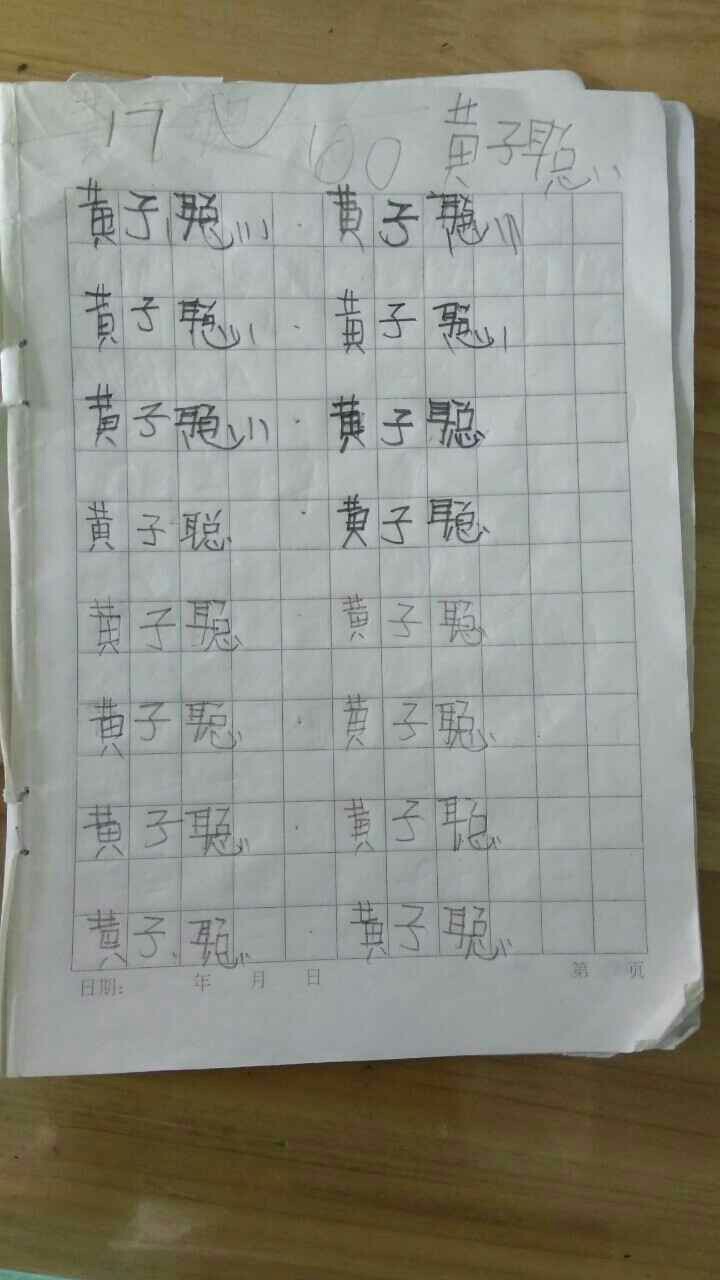 17 100 黄子聪
黄子聪 · 黄子聪
黄子聪 · 黄子聪
黄子聪 · 黄子聪
黄子聪 · 黄子聪
黄子聪 黄子聪
黄子聪 · 黄子聪
黄子聪 · 黄子聪
黄子聪 · 黄子聪
日期: 年 月 日 第 页